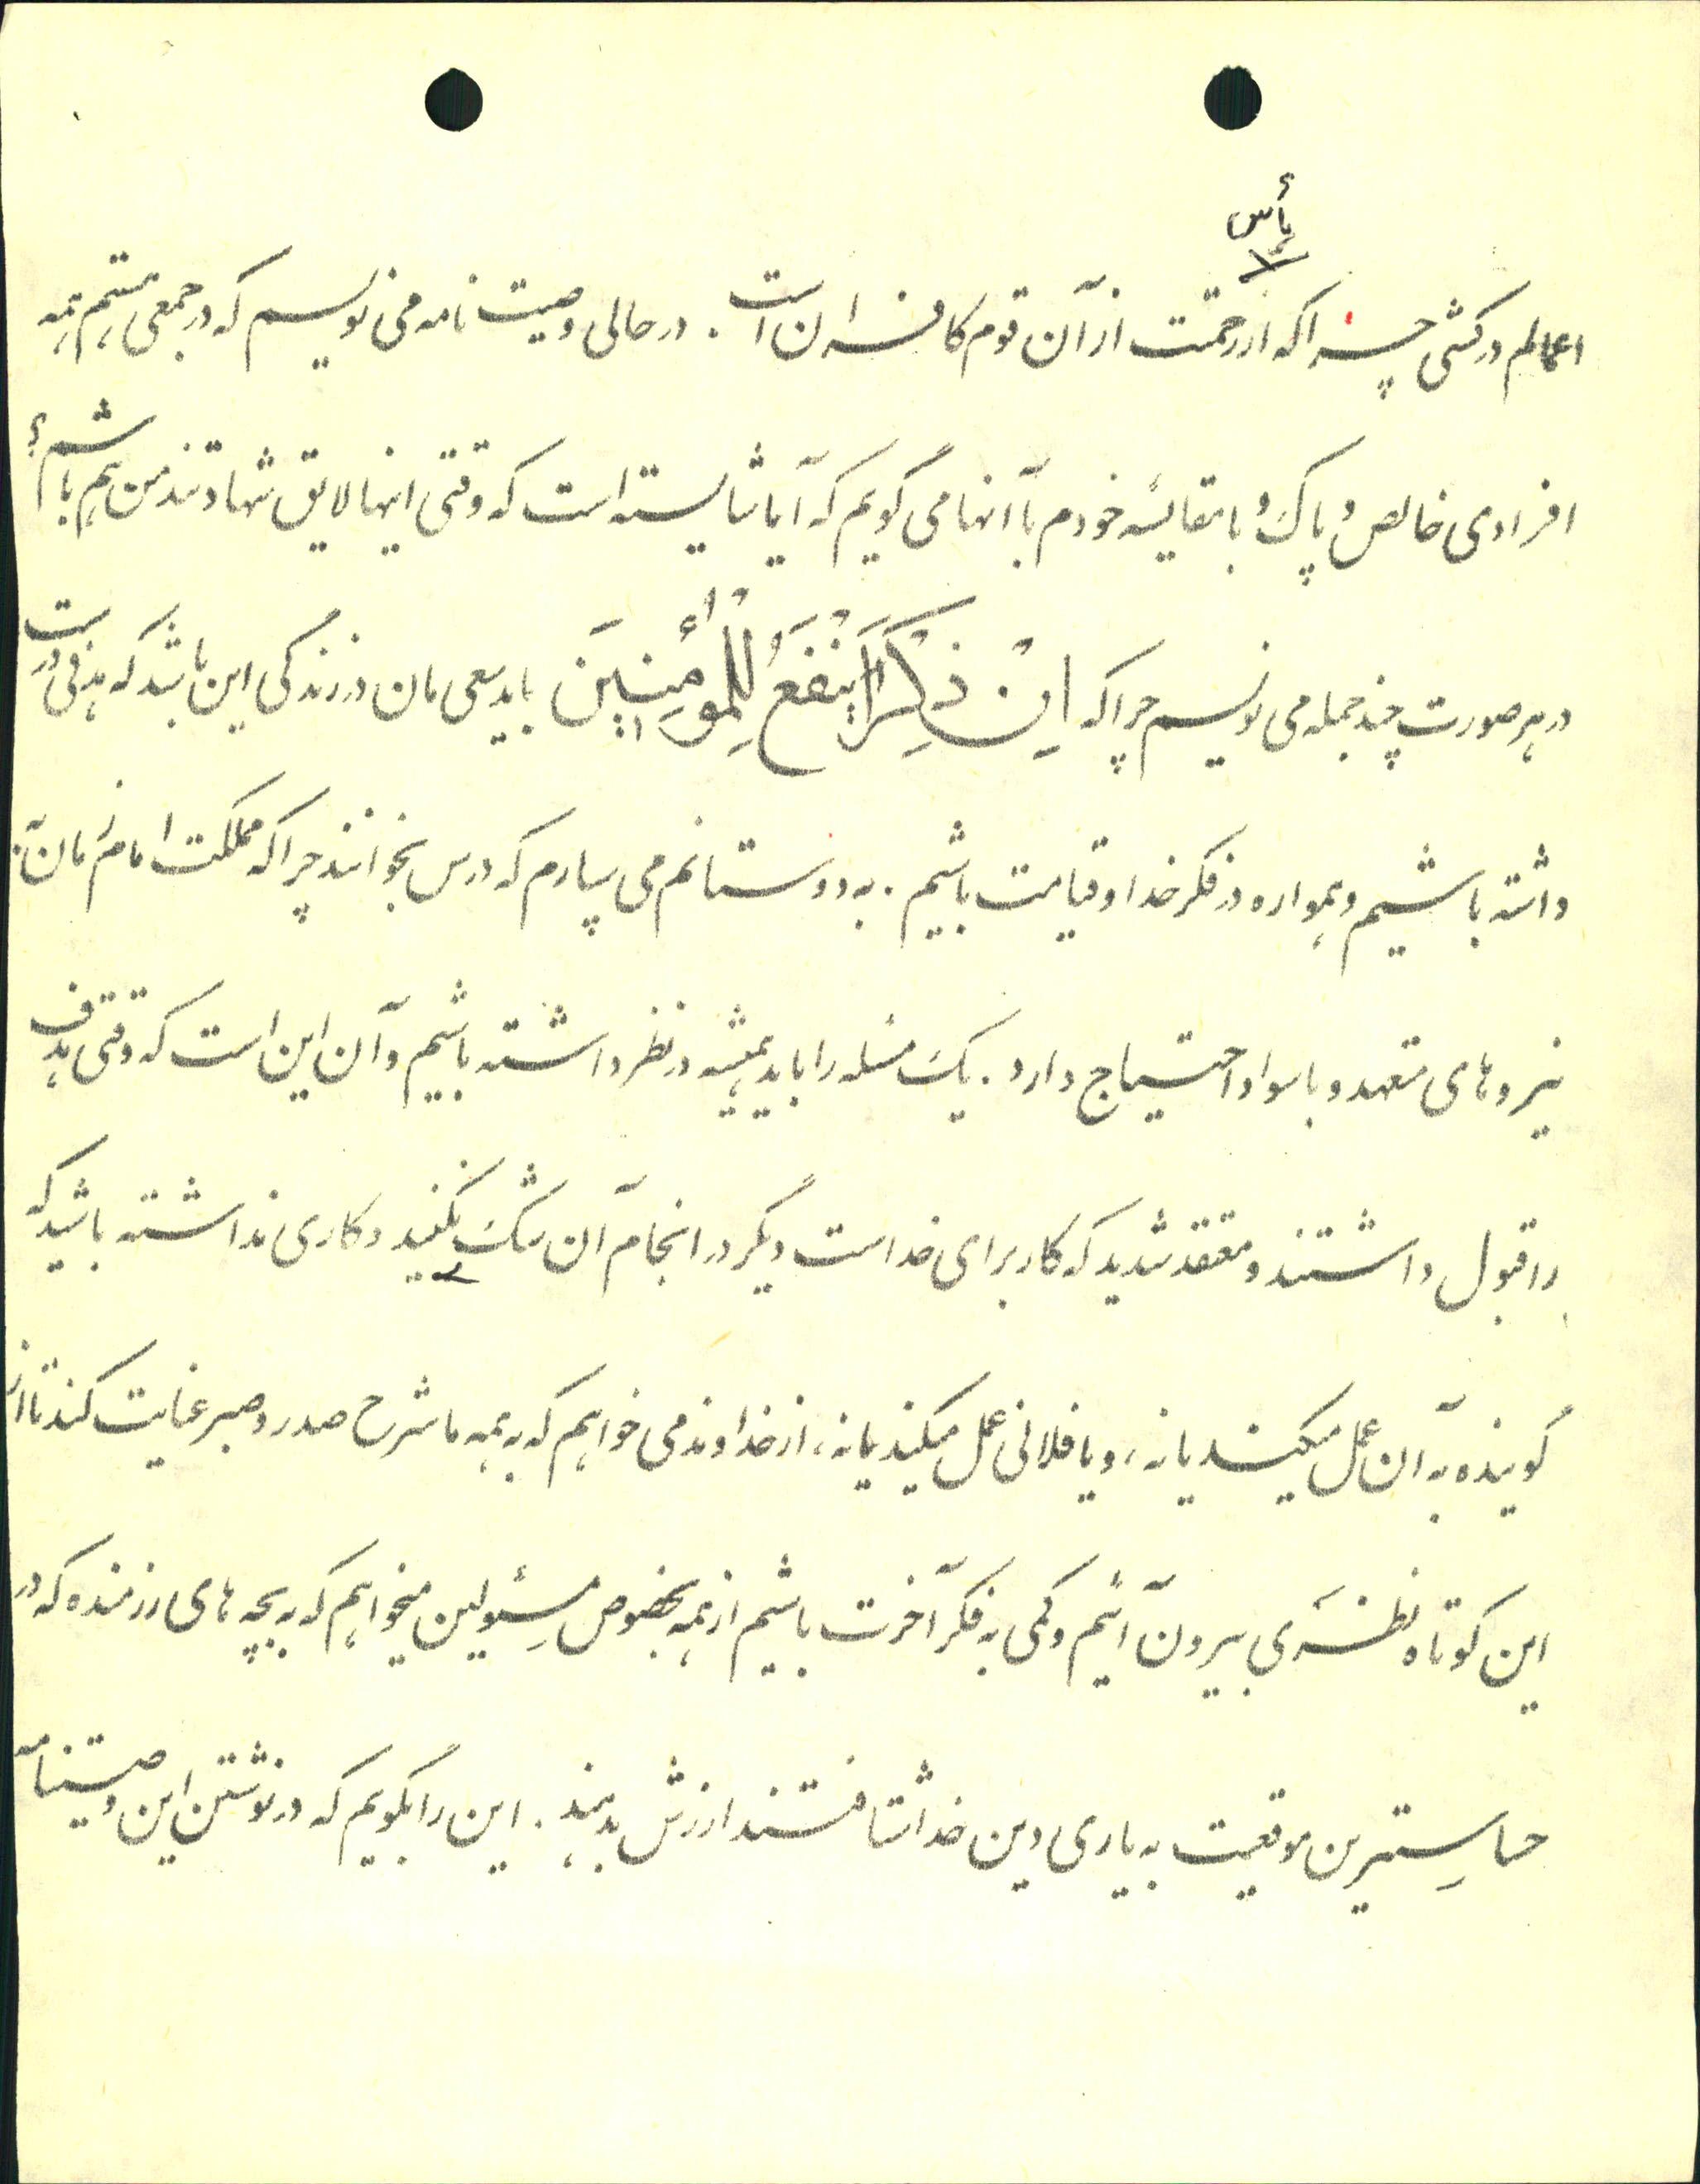 یأس
اعمالم در کشی چرا که از رحمتت از آن قوم کافران است. در حالی وصیت نامه می نویسم که در جمعی هستیم همه
افرادی خالص و پاک و با مقایسه خودم با آنها می گویم که آیا شایسته است که وقتی اینها لایق شهادتند من هم باشم؟
در هر صورت چند جمله می نویسم چرا که اِنْ ذِکْرَاَ یَنْفَعُ لِلْمُؤمِنینَ باید سعی مان در زندگی این باشد که هدفی درست
داشته باشیم و همواره در فکر خدا و قیامت باشیم. به دوستانم می سپارم که درس بخوانند چرا که مملکت امام زمان به
نیروهای متعهد و باسواد احتیاج دارد. یک مسئله را باید همیشه در نظر داشته باشیم و آن این است که وقتی هدف
را قبول داشتند و معتقد شدید که کار برای خداست دیگر در انجام آن شک نکنید و کاری نداشته باشید که
گوینده به آن عمل میکند یا نه، و یا فلانی عمل میکند یا نه، از خداوند می خواهم که به همه ما شرح صدر و صبر عنایت کند تا از
این کوتاه نظری بیرون آئیم و کمی به فکر آخرت باشیم از همه بخصوص مسئولین میخواهم که به بچه های رزمنده که در
حساسترین موقعیت به یاری دین خدا شتافتند ارزش بدهند. این را بگویم که در نوشتن این وصیتنامه